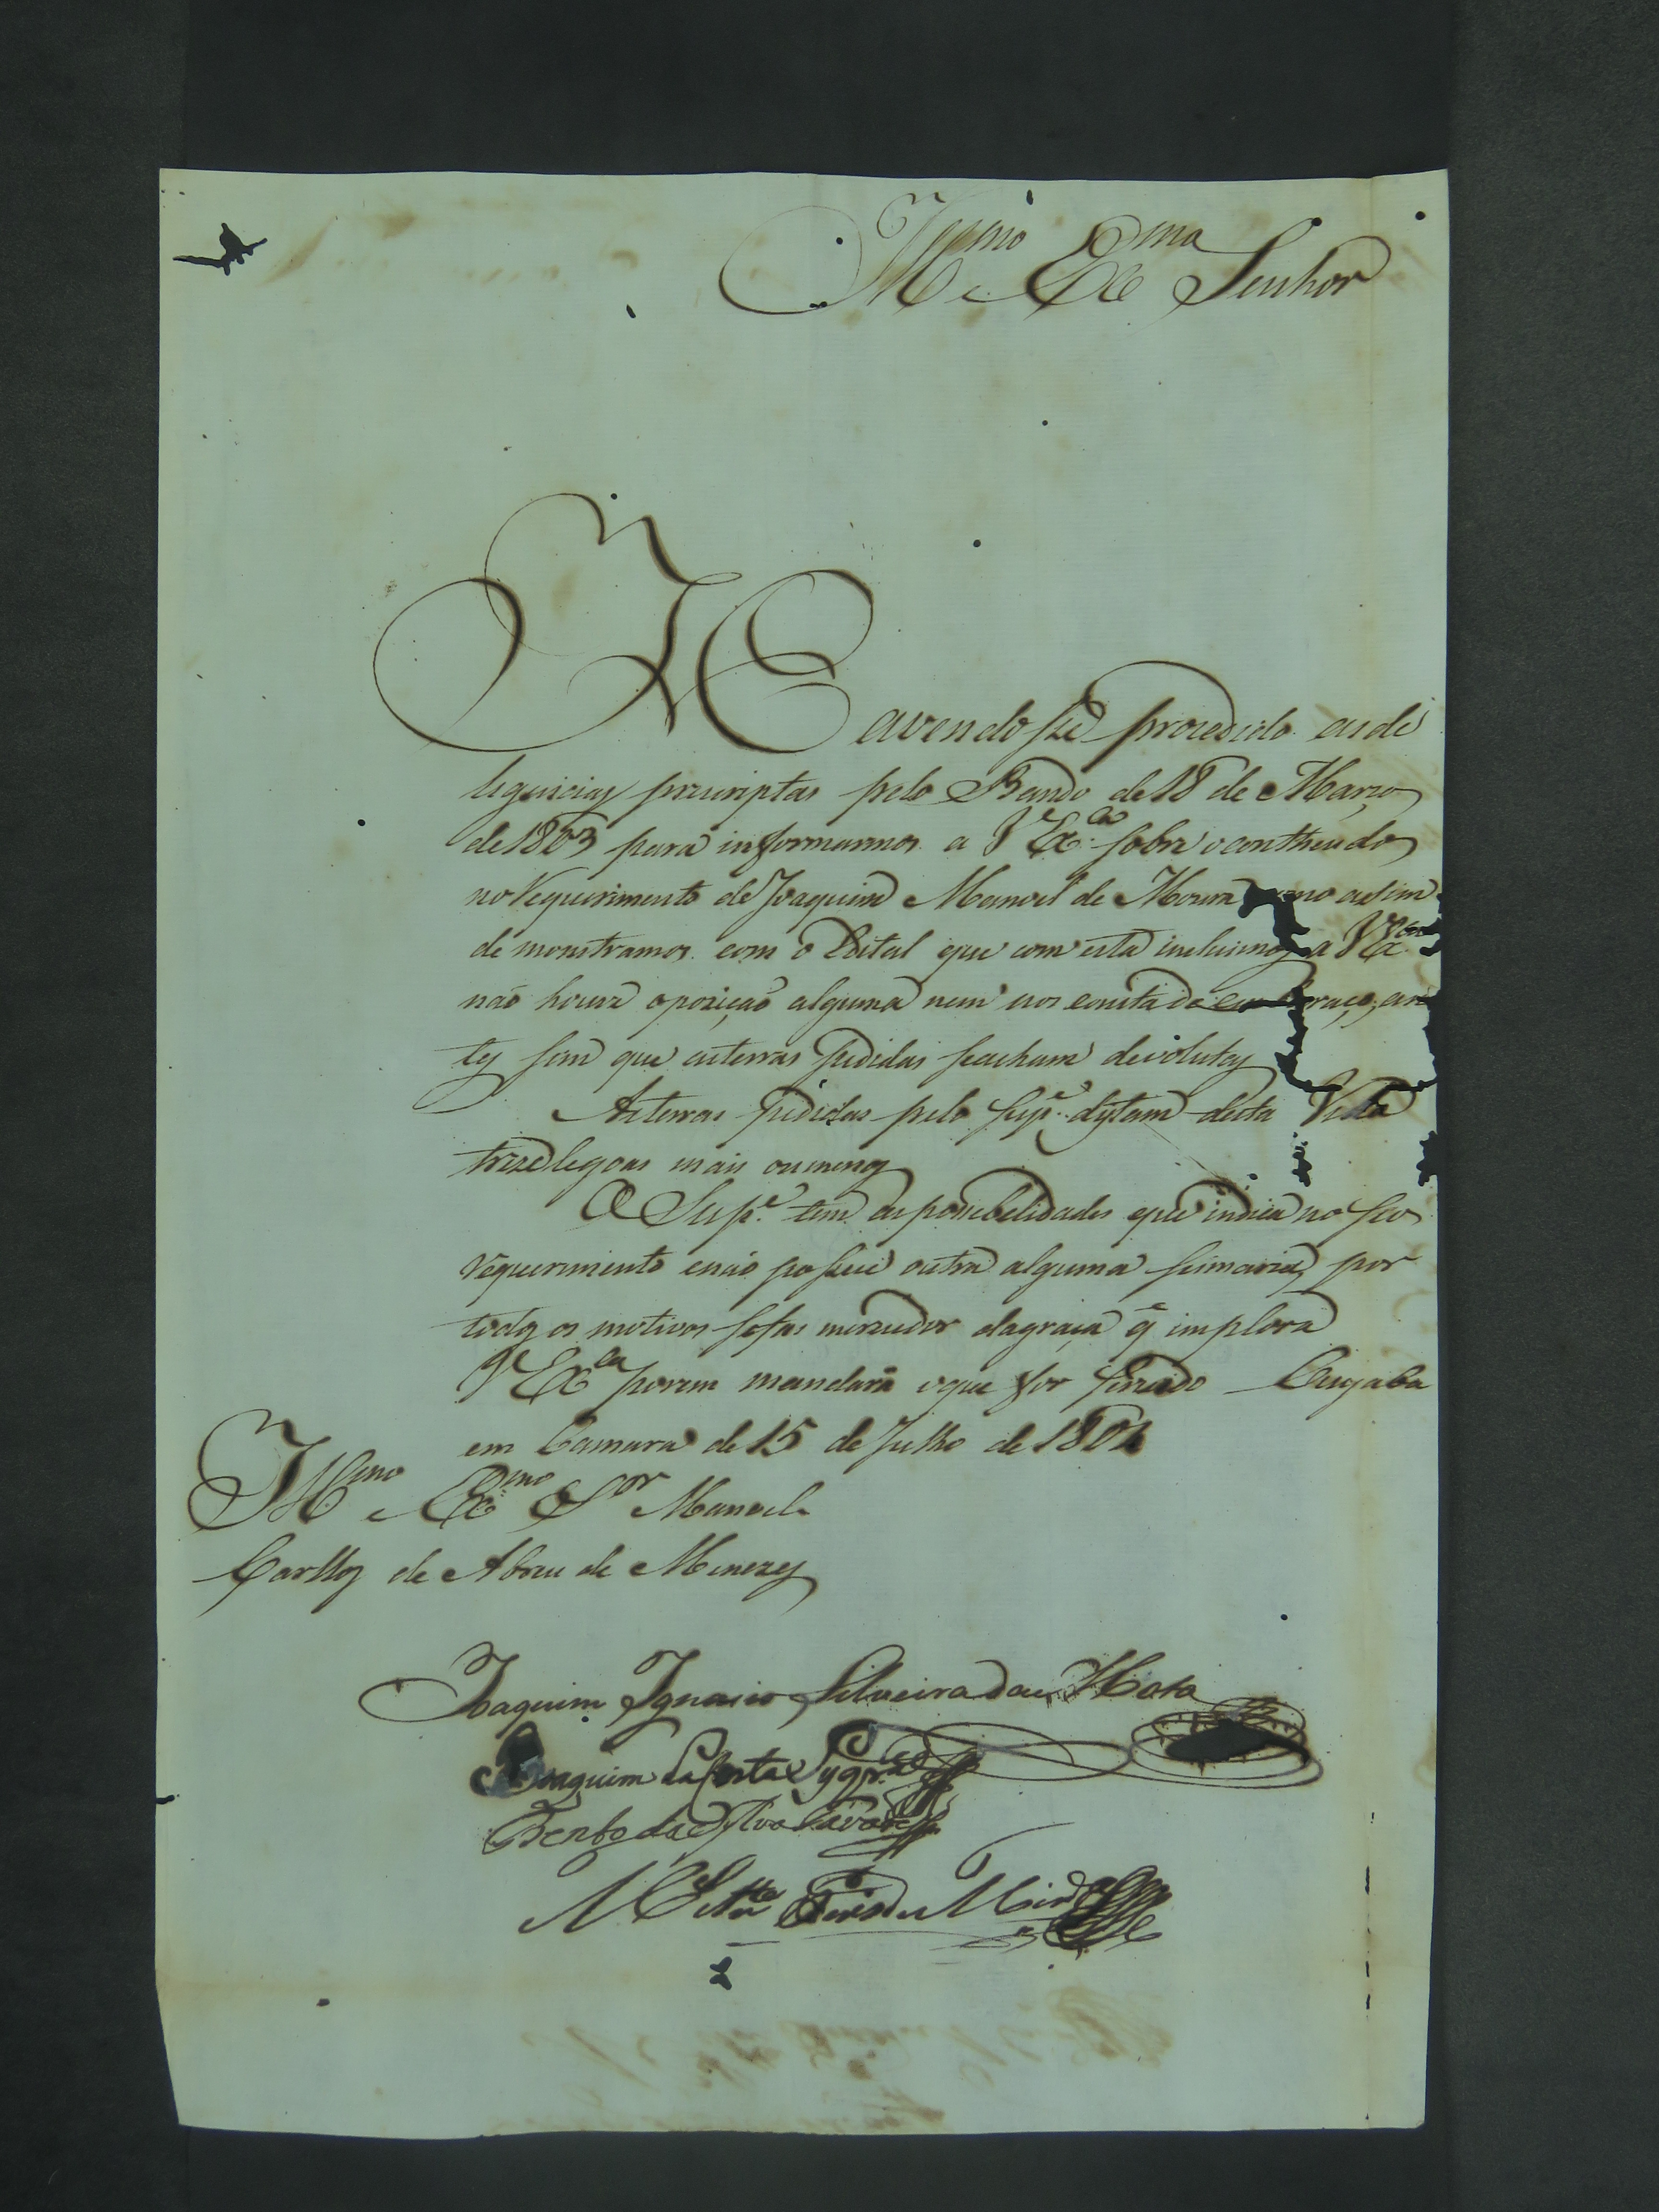 Illmo e Exmo Senhor
Havendose procedido as de
ligencias prescriptas pelo Bando de 18 de Março
de 1803 para informarmos a VExca sobre o contheudo
no Requerimento de Joaquim Manoel de Moura como asim
de monstramos com o Edital que com esta incluimos a VExca
não houve opozição alguma nem nos consta de embaraço, an
tes sim que asterras pedidas seacham devolutas
Asterras pedidas pelo Supe distam desta Villa
treze legoas mais oumenos
O Supe tem as posebelidades que indica no seo
requerimento enão posue outra alguma sesmaria, por
todos os motivos sefas merecedor dagraça q̃ implora
VExca porem mandará oque for servido Cuyaba
em Camara de 15 de Julho de 180
Illmo e Exmo Sor Manoel
Carllos de Abreu de Menezes
Joaquim Ignacio Silveira da Mota
Joaquim da Costa
Bento da Sylva Tavares